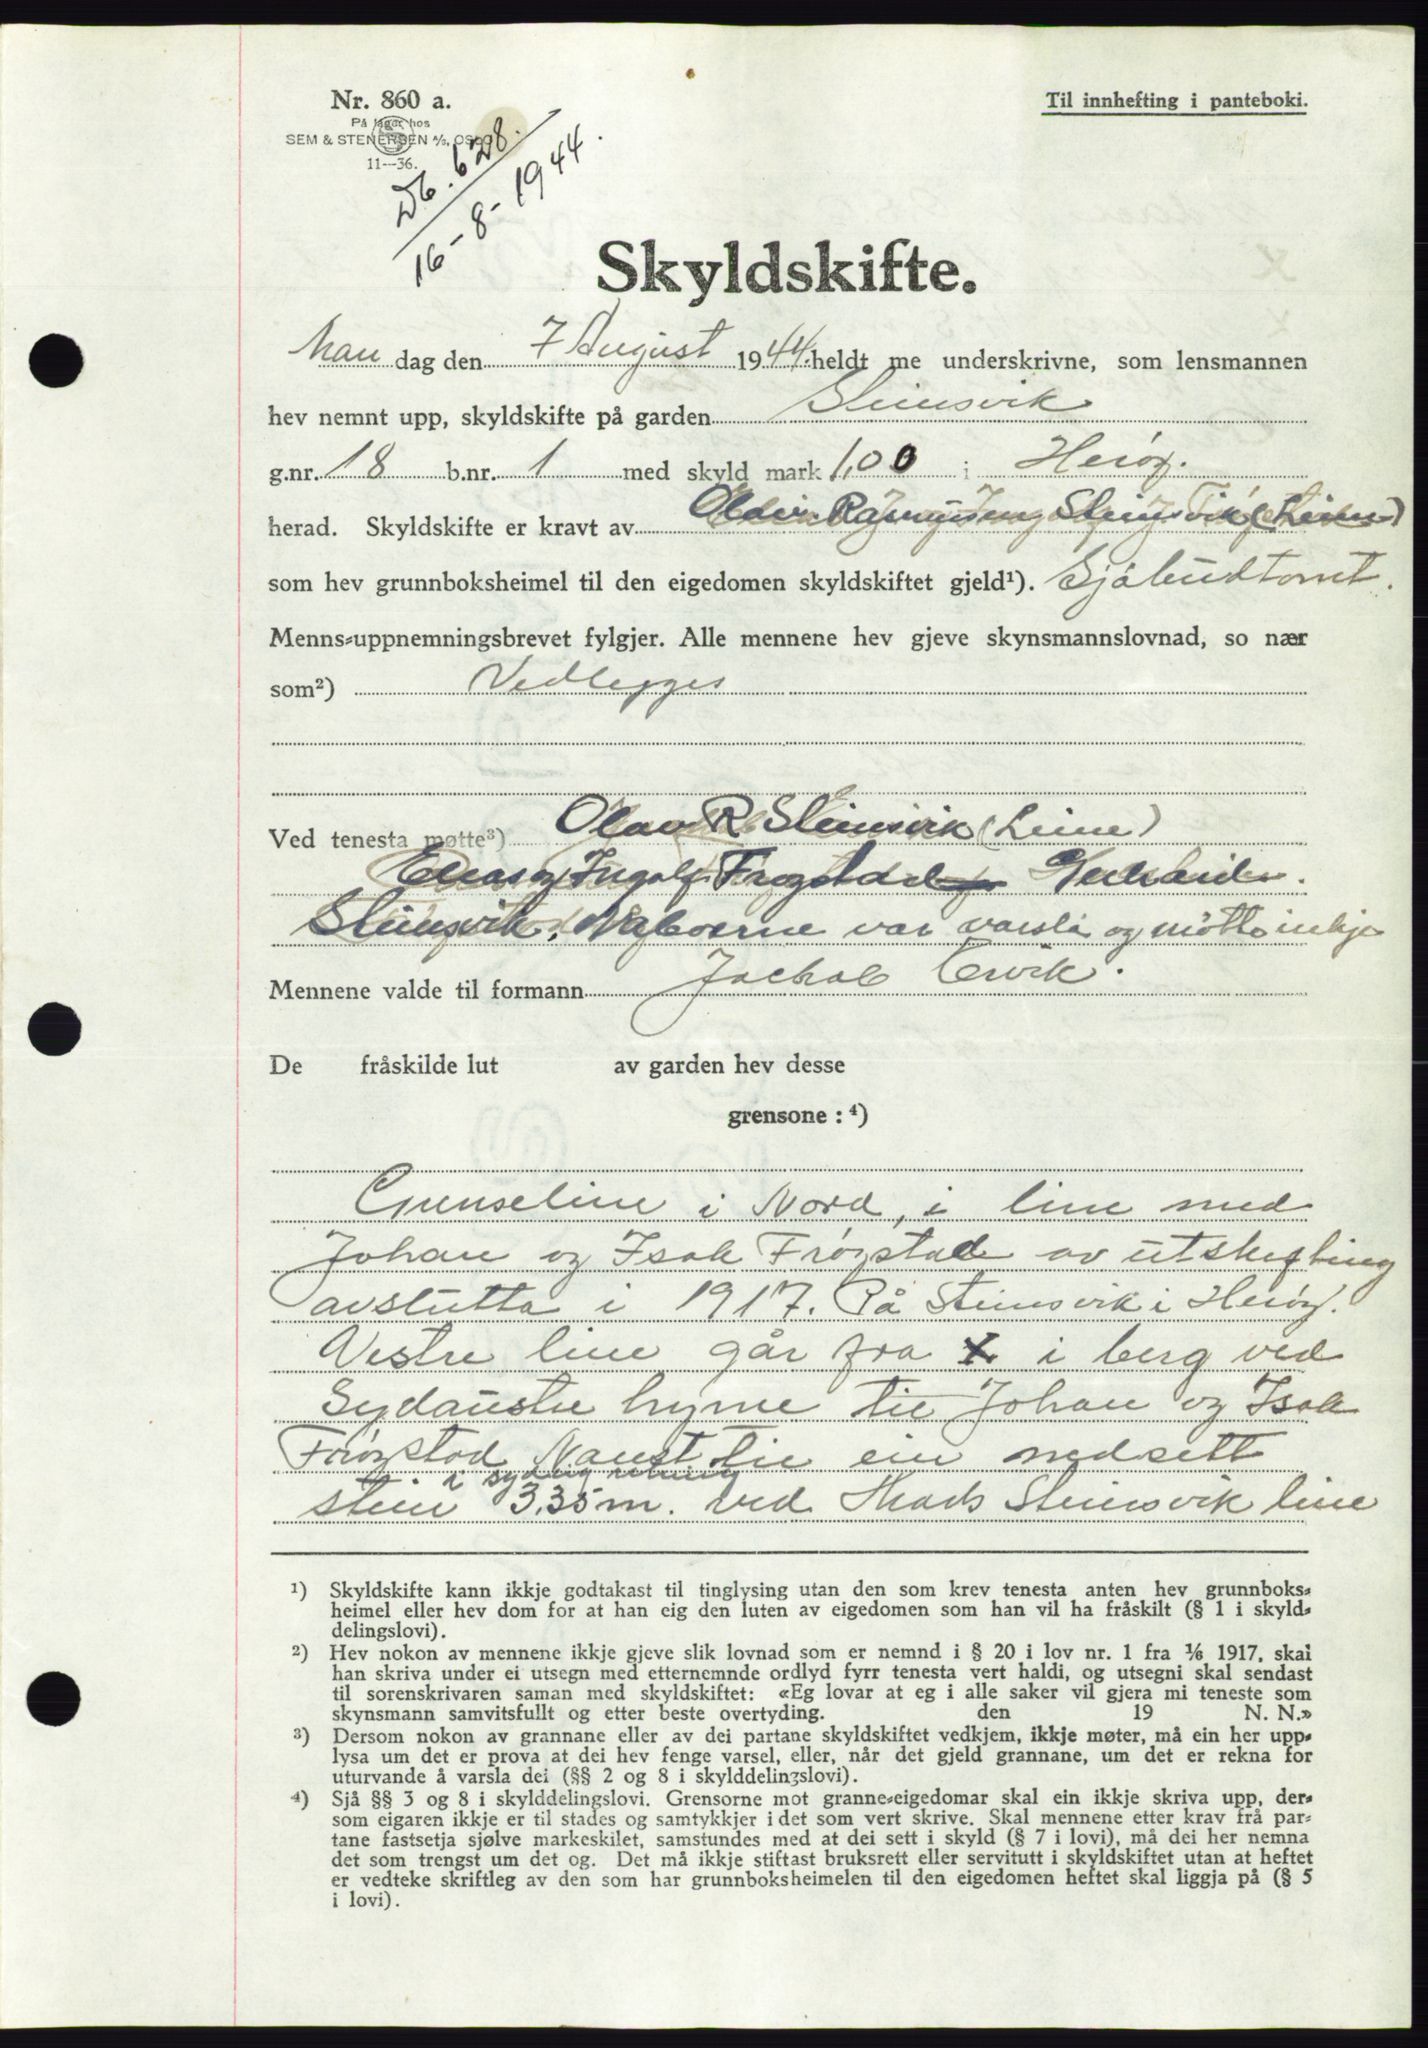 Nr. 860 a.
På lager hos
SEM & STENERSEN A/S, OSLO
11—36.
Til innhefting i panteboki.
Db. 628.
16-8-1944.
Skyldskifte.
Man dag den 7 August 1944. heldt me underskrivne, som lensmannen
hev nemnt upp, skyldskifte på garden Steinsvik
g.nr. 18 b.nr. 1 med skyld mark 1,00 i Herøy.
herad. Skyldskifte er kravt av Olav Steinsvik (Leine)
som hev grunnboksheimel til den eigedomen skyldskiftet gjeld¹). Sjåbudtomt.
Menns=uppnemningsbrevet fylgjer. Alle mennene hev gjeve skynsmannslovnad, so nær
som²) Vedlegges
Ved tenesta møtte³) Olav R Steinsvik (Leine)
Elias og Ingolf Frøystad
Steinsvik. Naboerne var varsla og møtte inkje
Mennene valde til formann Jackob Ervik.
De fråskilde lut av garden hev desse
grensone : ⁴)
Grenseline i Nord, i line med
Johan og Isak Frøystad av utskifting
avslutta i 1917. På Steinsvik i Herøy.
Vestre line går fra X i berg ved
Sydaustre hyrne til Johan og Isak
Frøystad Naust til ein nedsett
i sydlig retning
stein 3,35 m. ved Mads Steinsvik line
¹) Skyldskifte kann ikkje godtakast til tinglysing utan den som krev tenesta anten hev grunnboks=
heimel eller hev dom for at han eig den luten av eigedomen som han vil ha fråskilt (§ 1 i skyld=
delingslovi).
²) Hev nokon av mennene ikkje gjeve slik lovnad som er nemnd i § 20 i lov nr. 1 fra 1/6 1917, skal
han skriva under ei utsegn med etternemnde ordlyd fyrr tenesta vert haldi, og utsegni skal sendast
til sorenskrivaren saman med skyldskiftet: «Eg lovar at eg i alle saker vil gjera mi teneste som
skynsmann samvitsfullt og etter beste overtyding. den 19 N. N.»
³) Dersom nokon av grannane eller av dei partane skyldskiftet vedkjem, ikkje møter, må ein her upp=
lysa um det er prova at dei hev fenge varsel, eller, når det gjeld grannane, um det er rekna for
uturvande å varsla dei (§§ 2 og 8 i skylddelingslovi).
⁴) Sjå §§ 3 og 8 i skylddelingslovi. Grensorne mot granne=eigedomar skal ein ikkje skriva upp, der=
som eigaren ikkje er til stades og samtykkjer i det som vert skrive. Skal mennene etter krav frå par=
tane fastsetja sjølve markeskilet, samstundes med at dei sett i skyld (§ 7 i lovi), må dei her nemna
det som trengst um det og. Det må ikkje stiftast bruksrett eller servitutt i skyldskiftet utan at heftet
er vedteke skriftleg av den som har grunnboksheimelen til den eigedomen heftet skal liggja på (§ 5
i lovi).